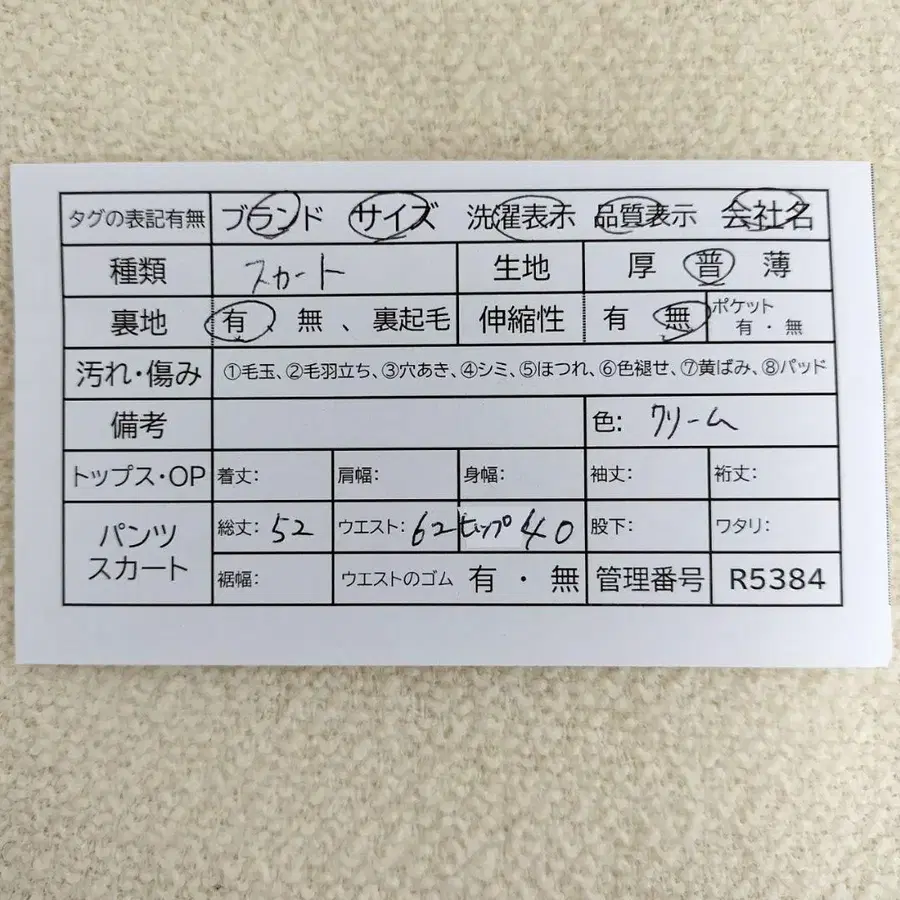 タグの表記有無 ブランド サイズ 洗濯表示 品質表示 会社名
種類 スカート 生地 厚 普 薄
裏地 有、無、裏起毛 伸縮性 有 無 ポケット 有・無
汚れ・傷み ①毛玉、②毛羽立ち、③穴あき、④シミ、⑤ほつれ、⑥色褪せ、⑦黄ばみ、⑧パッド
備考 色: クリーム
トップス・OP 着丈: 肩幅: 身幅: 袖丈: 裄丈:
パンツ スカート 総丈: 52 ウエスト: 62 ヒップ 40 股下: ワタリ:
裾幅: ウエストのゴム 有・無 管理番号 R5384